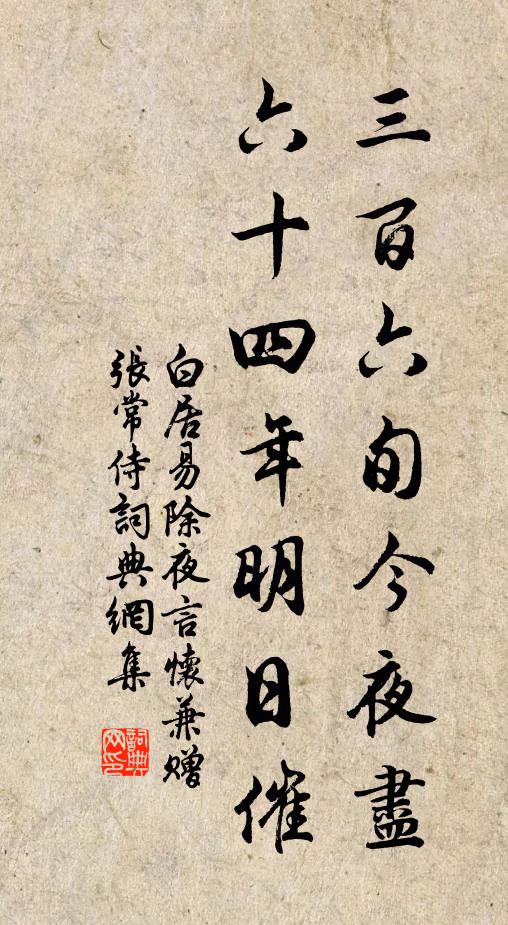 三百六旬今夜盡
六十四年明日催
白居易除夜言懷兼贈
張常侍詞典網集
詞典
网印